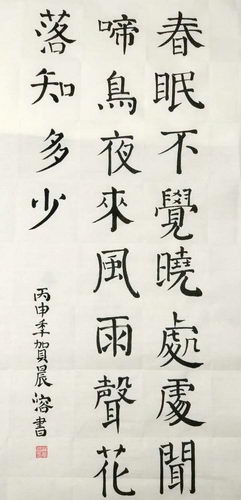 春眠不覺曉處處聞
啼鳥夜來風雨聲花
落知多少
丙申年賀晨溶書